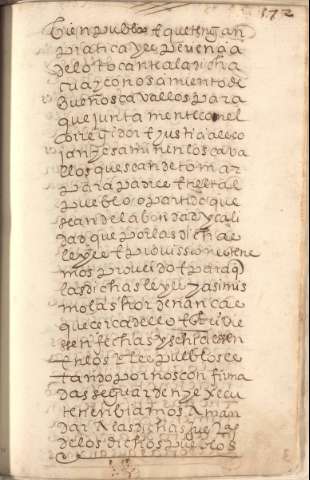 172
bien publico e que tengan
platica y experiençia
de lo tocante a la rraça
cria y conosçamiento de
buenos cavallos para
que juntamente con el
corregidor e justiçia esco
jan y esaminen los cava
llos que sean de tomar
para padre e en el tal
pueblo o partido que
sean de la bondad y cali
dad que por las dichas
leyes e provission tene
mos proveido e para q
las dichas leyes y asimis
mo las hordenanças
que çerca dello
en fechas y se hizieren
en los pueblos es
tando por nos confirma
das se guarden y execu
ten enbiamos a man
dar a las dichas justas
de los dichos pueblos